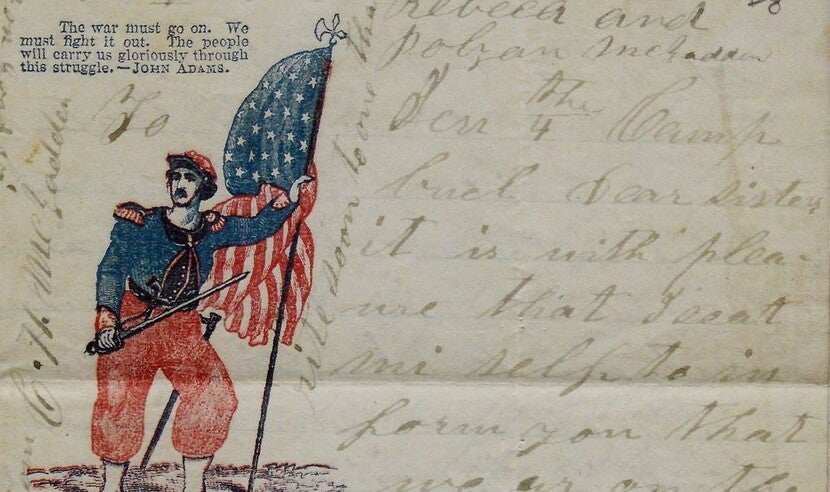 The war must go on. We
must fight it out. The people
will carry us gloriously through
this struggle.—JOHN ADAMS.
rebeca and
polyan mcfadden
To
Jen the 4 Camp
buel Dear sister
it is with plea
sure that I seat
mi self to in
form you that
we ar on the
C. H. McFadden
rite soon to me